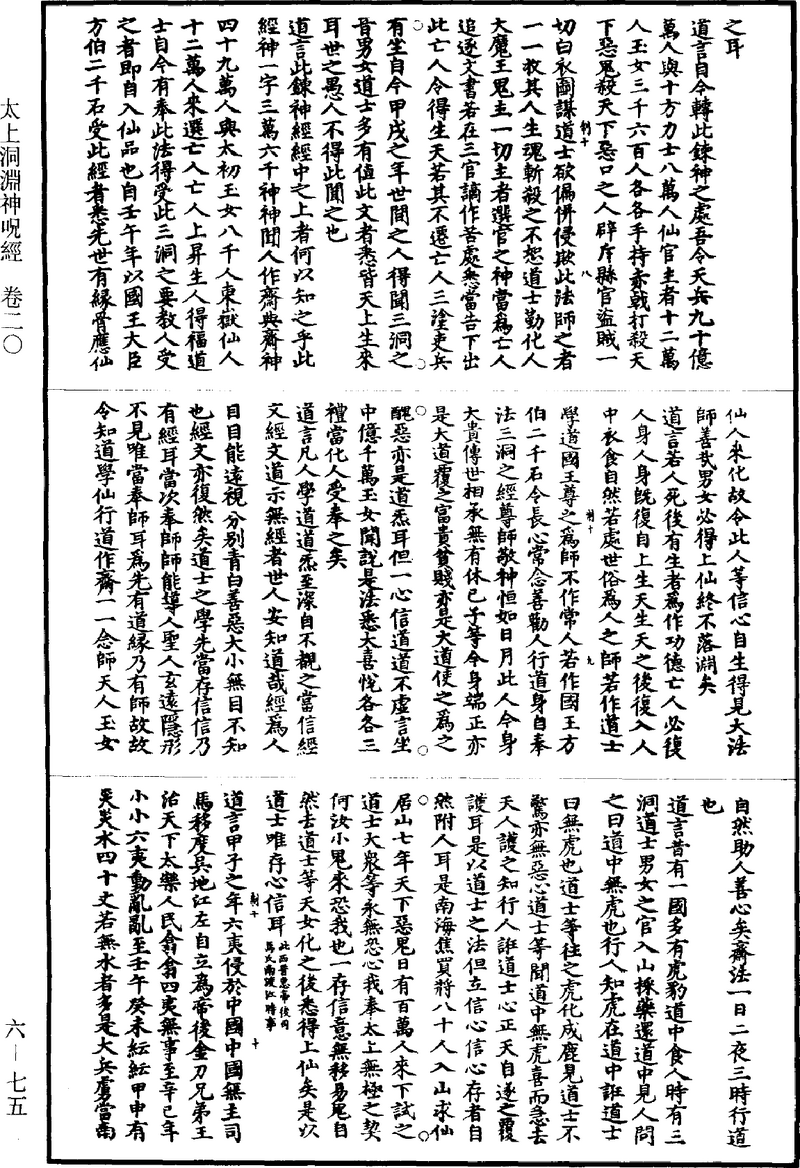 太上洞淵神呪經　卷二〇
六—七五
之耳
道言自今轉此鍊神之處吾令天兵九十億
萬人與十方力士八萬人仙官主者十二萬
人玉女三千六百人各各手持赤戟打殺天
下惡鬼殺天下惡口之人辟斥縣官盜賊一
切白衣圖謀道士欲偏併侵欺此法師之者
一一收其人生魂斬殺之不恕道士勤化人
大魔王鬼主一切主者選官之神當為亡人
追逐文書若在三官謫作苦處悉當告下出
此亡人令得生天若其不遷亡人三塗吏兵
有坐自今甲戌之年世間之人得聞三洞之
音男女道士多有值此文者悉皆天上生來
耳世之愚人不得此聞之也
道言此鍊神經經中之上者何以知之乎此
經神一字三萬六千神神聞人作齋與齋神
四十九萬人與太初玉女八千人東嶽仙人
十二萬人來選亡人亡人上昇生人得福道
士自今有奉此法得受此三洞之要教人受
之者即自入仙品也自壬午年以國王大臣
方伯二千石受此經者悉先世有緣骨應仙
仙人來化故令此人等信心自生得見大法
師善哉男女必得上仙終不落淵矣
道言若人死後有生者為作功德亡人必復
人身人身既復自上生天生天之後復入人
中衣食自然若處世俗為人之師若作道士
學道國王尊之為師不作常人若作國王方
伯二千石令長心常念善勸人行道身自奉
法三洞之經尊師敬神恒如日月此人今身
大貴傳世相承無有休已子等今身端正亦
是大道覆之富貴貧賤亦是大道使之為之
醜惡亦是道炁耳但一心信道道不虛言坐
中億千萬玉女聞說是法悉大喜悅各各三
禮當化人受奉之矣
道言凡人學道道炁至深自不親之當信經
文經文道示無經者世人安知道哉經為人
目目能遠視分別青白善惡大小無目不知
也經文亦復然矣道士之學先當存信信乃
有經耳當次奉師師能導人聖人玄遠隱形
不見唯當奉師耳為先有道緣乃有師故故
令知道學仙行道作齋一一念師天人玉女
自然助人善心矣齋法一日二夜三時行道
也
道言昔有一國多有虎豹道中食人時有三
洞道士男女之官入山採藥還道中見人問
之曰道中無虎也行人知虎在道中誑道士
曰無虎也道士等往之虎化成鹿見道士不
驚亦無惡心道士等聞道中無虎喜而急去
天人護之知行人誑道士心正天自遂之覆
護耳是以道士之法但立信心信心存者自
然附人耳是南海焦買將八十人入山求仙
居山七年天下惡鬼日有百萬人來下試之
道士大衆等永無恐心我奉太上無極之契
何汝小鬼來恐我也一存信意無移易鬼自
然去道士等天女化之後悉得上仙矣是以
道士唯存心信耳此西晉惠帝後司馬氏南渡江時事
道言甲子之年六夷侵於中國中國無主司
馬移度兵地江左自立為帝後金刀兄弟王
治天下太樂人民翕翕四夷無事至辛巳年
小小六夷動亂亂至壬午癸未紜紜甲申有
災災水四十丈若無水者多是大兵虜當南